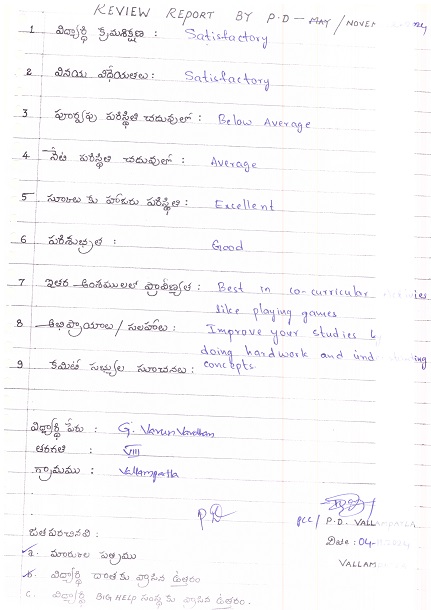 REVIEW REPORT BY P.D - MAY / NOVEM
1 విద్యార్థి క్రమశిక్షణ : Satisfactory
2 వినయ విధేయతలు : Satisfactory
3 పూర్వపు పరిస్థితి చదువులో : Below Average
4 నేటి పరిస్థితి చదువులో : Average
5 స్కూలు కు హాజరు పరిస్థితి : Excellent
6 పరిశుభ్రత : Good
7 ఇతర అంశములలో ప్రావీణ్యత : Best in co-curricular
like playing games
8 అభిప్రాయాలు / సలహాలు : Improve your studies by
doing hardwork and
9 కమిటీ సభ్యుల సూచనలు : concepts.
విద్యార్థి పేరు : G. Varun Vardhan
తరగతి : VIII
గ్రామము : Vallampatla
P.D
PCC / P.D. VALLAMPATLA
Date : 04-
VALLAM
జత పరచినవి :
a. మార్కుల పత్రము
b. విద్యార్థి దాతకు వ్రాసిన ఉత్తరం
c. విద్యార్థి BIG HELP సంస్థ కు వ్రాసిన ఉత్తరం.